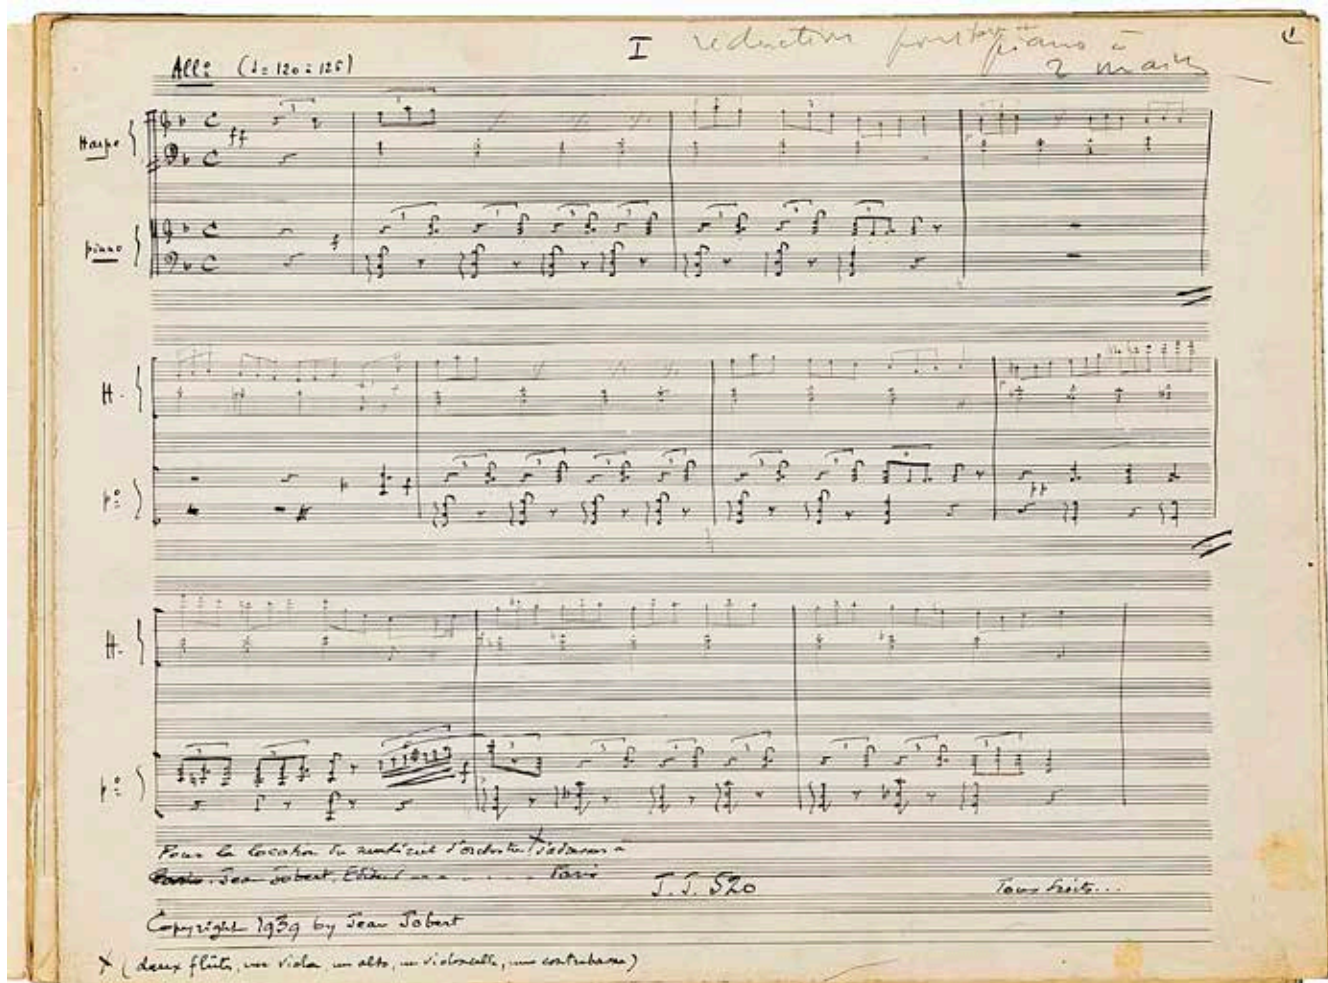 I
reduction pour piano à
2 mains
All° (♩= 120 à 126)
Harpe
ff
piano
f
H.
p°
f
pp
H.
p°
f
Pour la location du matériel d'orchestre x s'adresser à
Jean Jobert, Editeur - - - . . . . Paris
J. J. 520
Tous droits...
Copyright 1939 by Jean Jobert
x (deux flûtes, un violon, un alto, un violoncelle, une contrebasse)